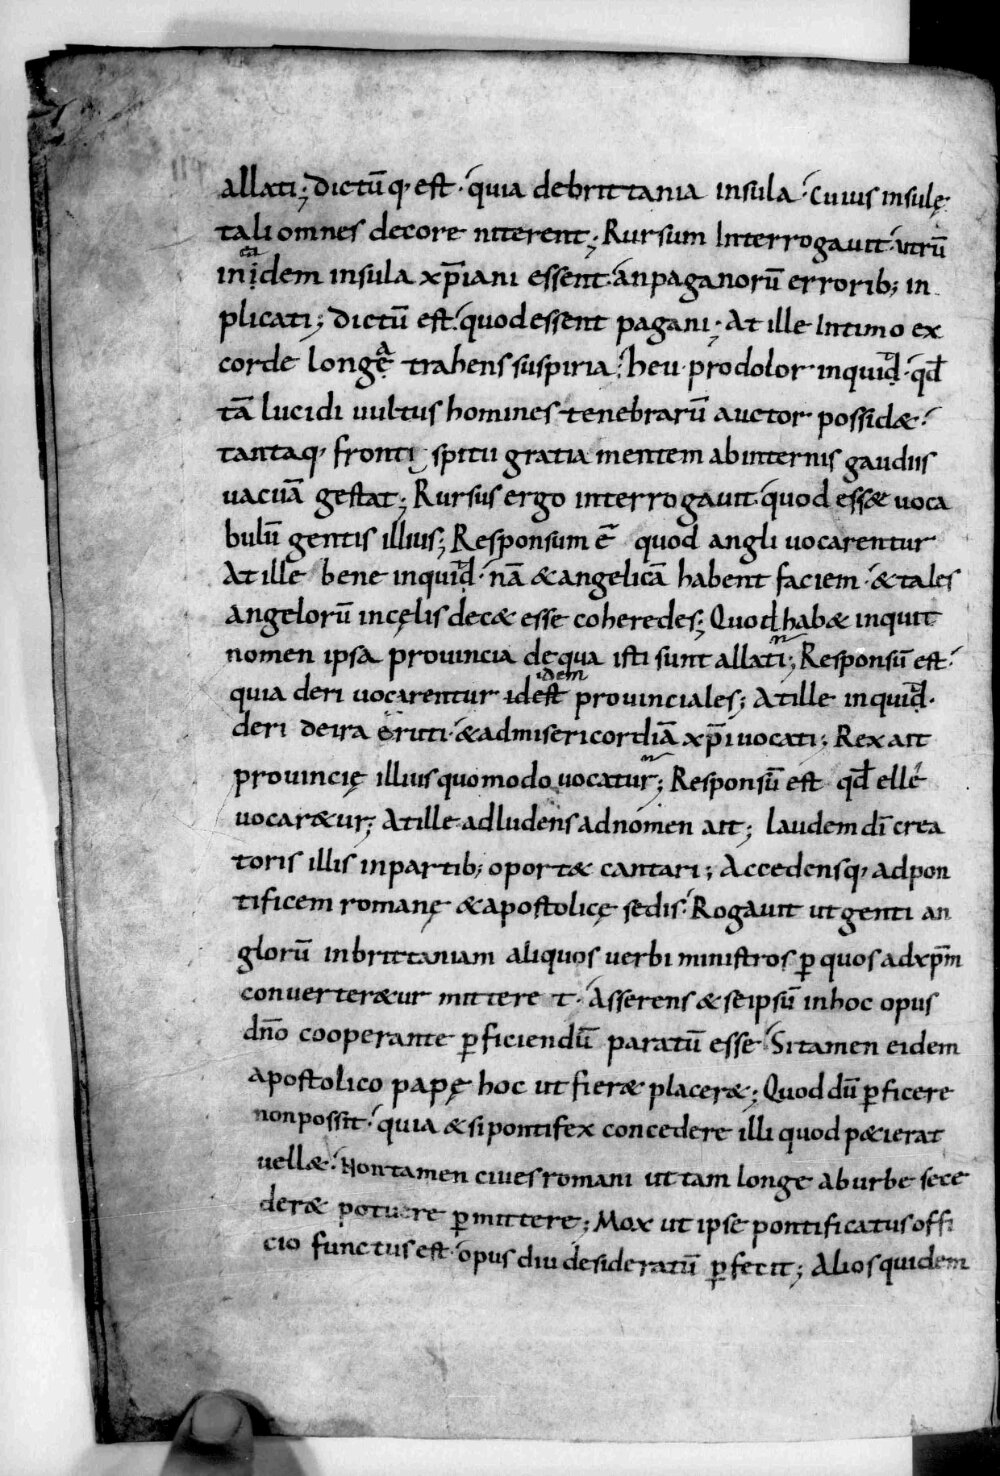 allati; dictū q; est· quia debrittania insula· cuius insulę
tali omnes decore niterent; Rursum Interrogauit· utrū
in ea idem insula xp̄iani essent· an paganorū errorib; in
plicati; dictū est· quod essent pagani; At ille Intimo ex
corde longę a trahens suspiria· heu· prodolor inquid· qđ
tā lucidi uultus homines tenebrarū auctor possidæ·
tantaq; frontispitii gratia mentem abinternis gaudiis
uacuā gestat; Rursus ergo interrogauit quod essæ uoca
bulū gentis illius; Responsum ē quod angli uocarentur
At ille bene inquid· nā & angelicā habent faciem· & tales
angelorū incęlis decæ esse coheredes; Quod habæ inquit
nomen ipsa prouincia dequa isti sunt allati; Responsū est·
quia deri uocarentur idem idest prouinciales; Atille inquid·
deri deira eruti· & admisericordiā xp̄i uocati; Rex ait
prouincię illius quomodo uocatur; Responsū est qđ elle
uocaræur; Atille adludens adnomen ait; laudem dī crea
toris illis inpartib; oportæ cantari; Accedensq; adpon
tificem romanę & apostolicę sedis· Rogauit ut genti an
glorū inbrittaniam aliquos uerbi ministros ꝑ quos adxp̄m
conuerteræur mittere t· Asserens & seipsū inhoc opus
dn̄o cooperante ꝑficiendū paratū esse· Si tamen eidem
apostolico papę hoc ut fieræ placeræ; Quod dū ꝑficere
non possit· quia & si pontifex concedere illi quod pæierat
uellæ· Non tamen ciues romani ut tam longe aburbe sece
deræ potuere ꝑmittere; Mox ut ipse pontificatus offi
cio functus est· opus diu desideratū ꝑfecit; Alios quidem